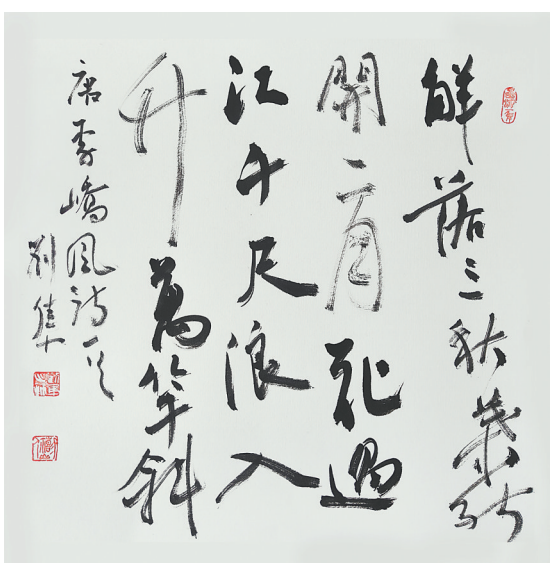 解落三秋葉能
開二月花過
江千尺浪入
竹萬竿斜
唐李嶠風詩一首
劉